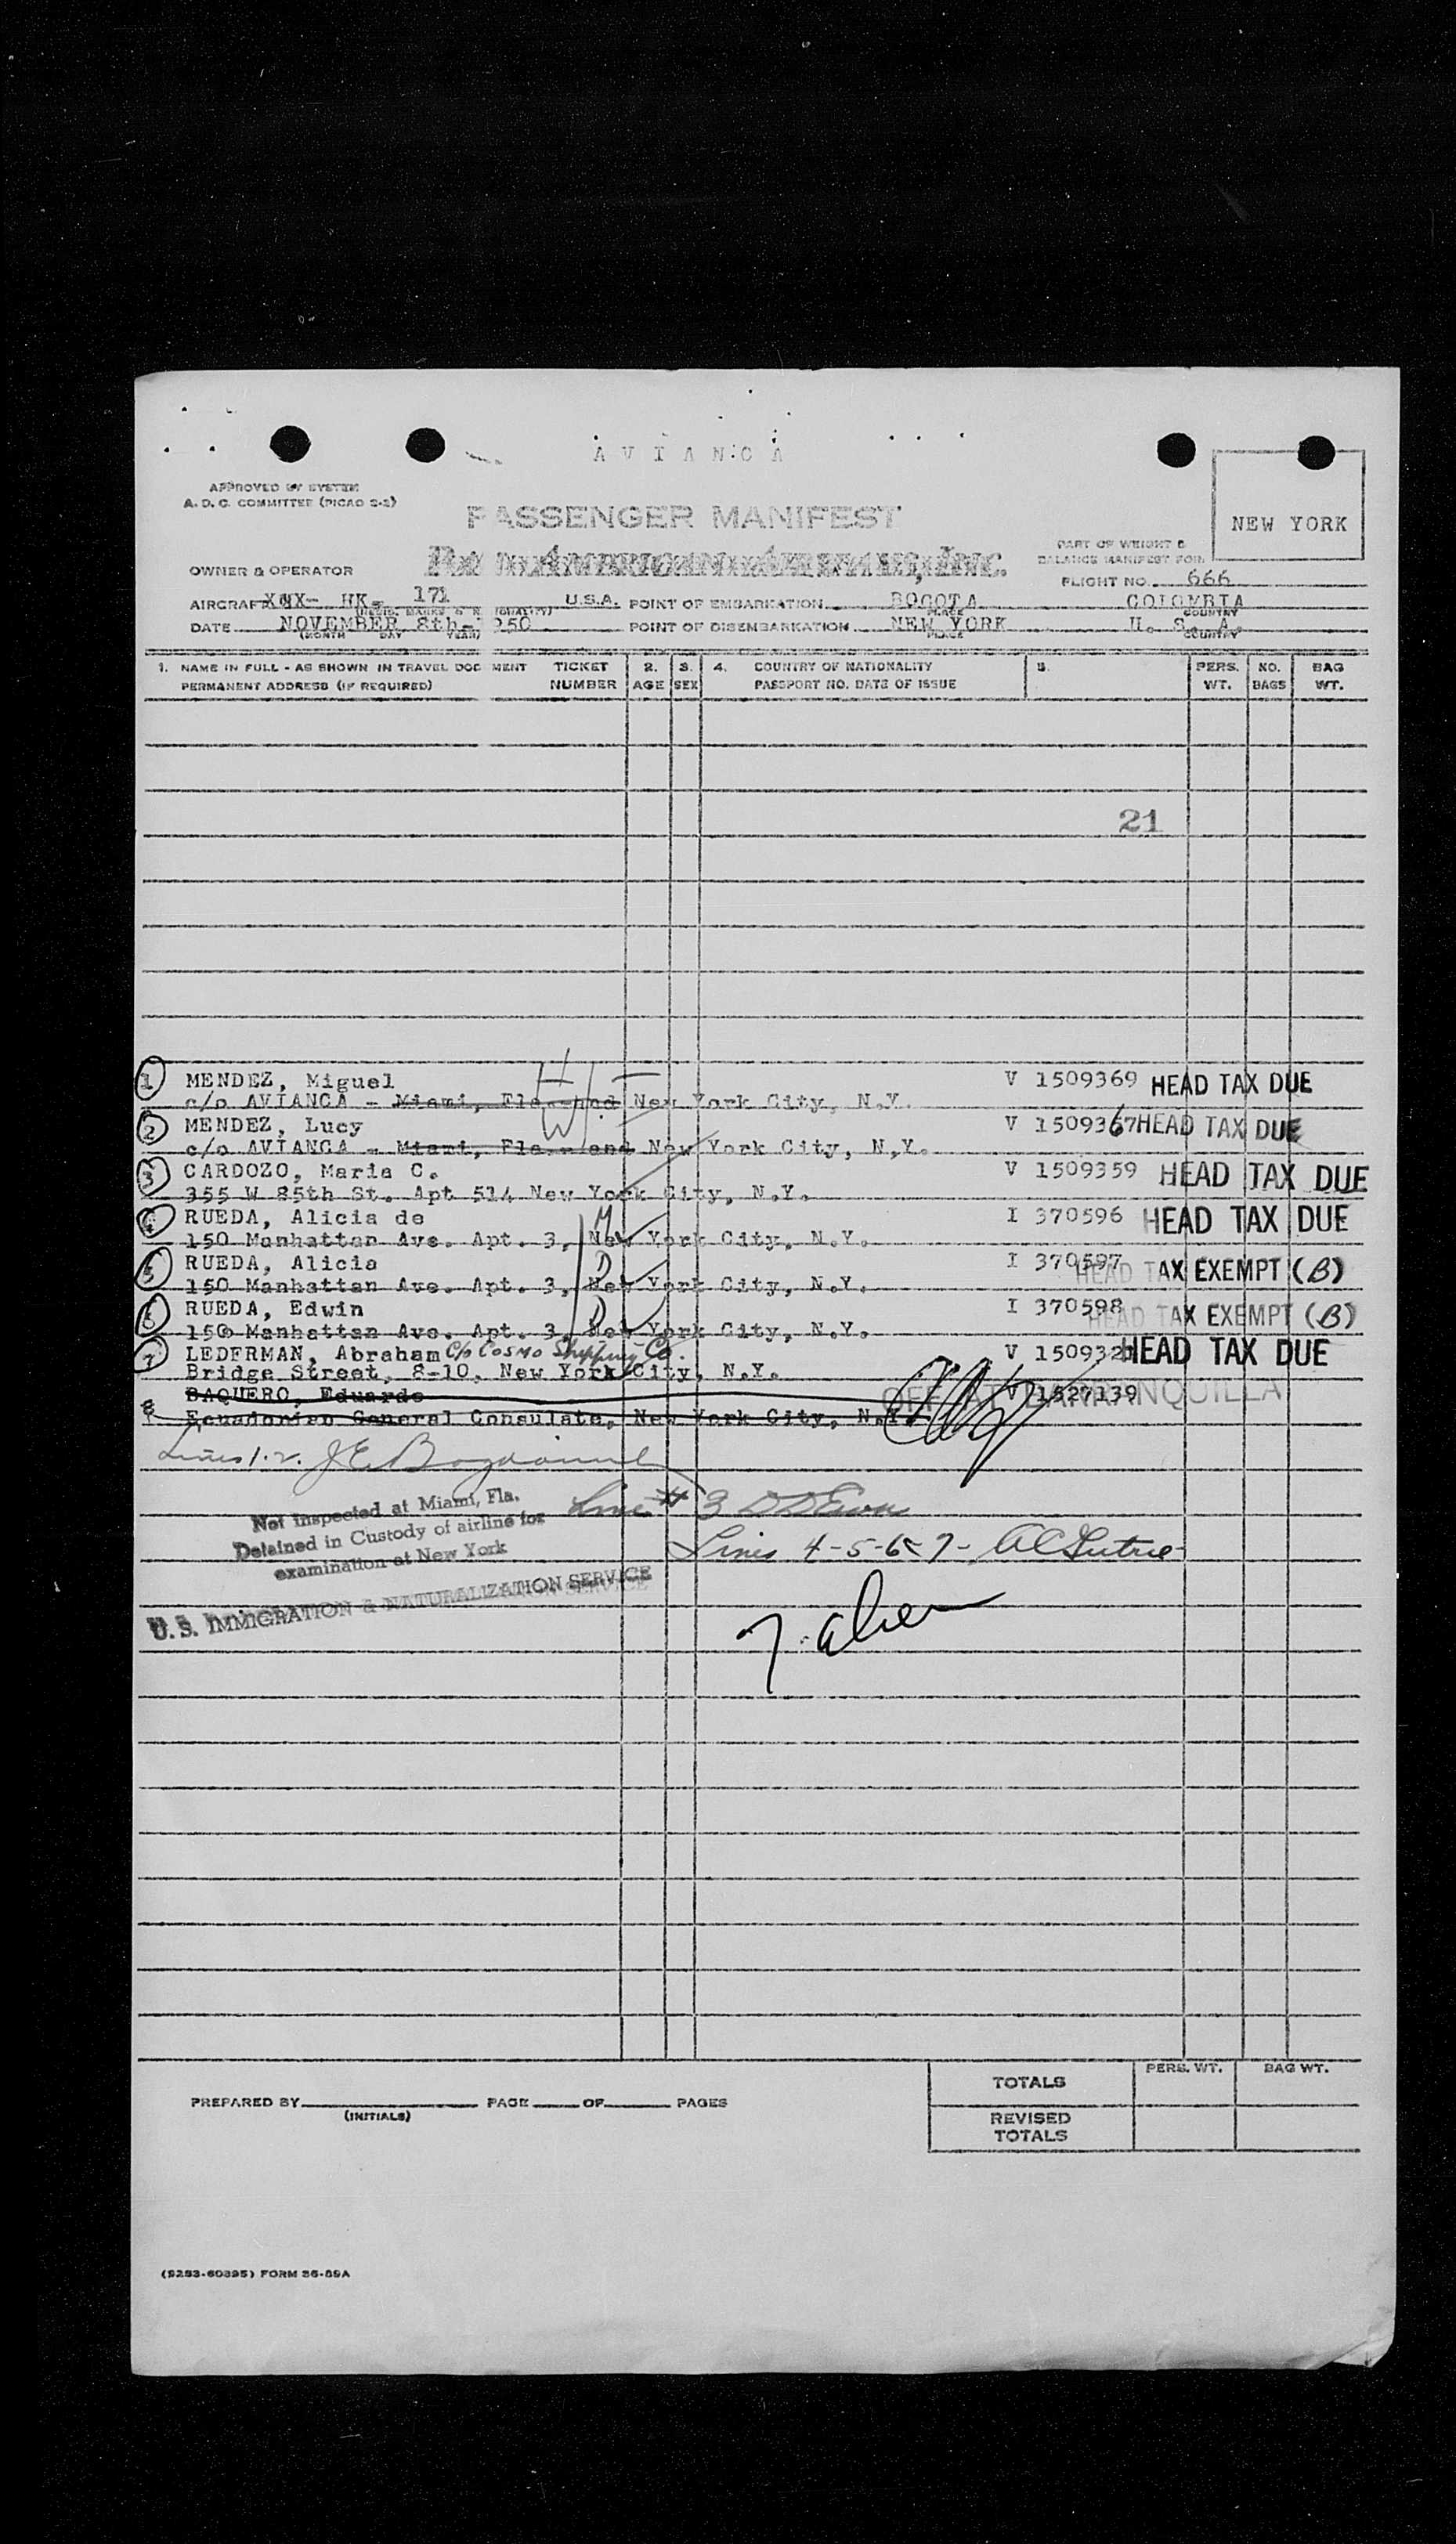 AVIANCA
APPROVED BY SYSTEM
A. D. C. COMMITTEE (PICAO 2-2)
PASSENGER MANIFEST
NEW YORK
PART OF WEIGHT &
BALANCE MANIFEST FOR
OWNER & OPERATOR
FLIGHT NO. 666
AIRCRAFT HK- 171 U.S.A. POINT OF EMBARKATION BOGOTA COLOMBIA
PLACE COUNTRY
DATE NOVEMBER 8th- 1950 POINT OF DISEMBARKATION NEW YORK U. S. A.
(MONTH DAY YEAR) PLACE COUNTRY
1. NAME IN FULL - AS SHOWN IN TRAVEL DOCUMENT TICKET 2. 3. 4. COUNTRY OF NATIONALITY 5. PERS. NO. BAG
PERMANENT ADDRESS (IF REQUIRED) NUMBER AGE SEX PASSPORT NO. DATE OF ISSUE WT. BAGS WT.
21
1 MENDEZ, Miguel H V 1509369 HEAD TAX DUE
c/o AVIANCA - Miami, Fla. and New York City, N.Y.
2 MENDEZ, Lucy W V 1509367 HEAD TAX DUE
c/o AVIANCA - Miami, Fla. and New York City, N.Y.
3 CARDOZO, Maria C. V 1509359 HEAD TAX DUE
355 W 85th St. Apt 514 New York City, N.Y.
4 RUEDA, Alicia de M I 370596 HEAD TAX DUE
150 Manhattan Ave. Apt. 3, New York City, N.Y.
5 RUEDA, Alicia D I 370597 HEAD TAX EXEMPT (B)
150 Manhattan Ave. Apt. 3, New York City, N.Y.
6 RUEDA, Edwin I 370598 HEAD TAX EXEMPT (B)
150 Manhattan Ave. Apt. 3, New York City, N.Y.
7 LEDERMAN, Abraham C/o Cosmo Shipping Co. V 150932 HEAD TAX DUE
Bridge Street, 8-10, New York City, N.Y.
8 BAQUERO, Eduardo V 1527139 OFF AT BARRANQUILLA
Ecuadorian General Consulate, New York City, N.Y.
Lines 1.2.
Not Inspected at Miami, Fla.
Detained in Custody of airline for
examination at New York
U. S. IMMIGRATION & NATURALIZATION SERVICE
Line # 3
Lines 4-5-6-7-
7 alien
PREPARED BY PAGE OF PAGES
(INITIALS)
PERS. WT. BAG WT.
TOTALS
REVISED
TOTALS
(9283-60395) FORM 36-59A